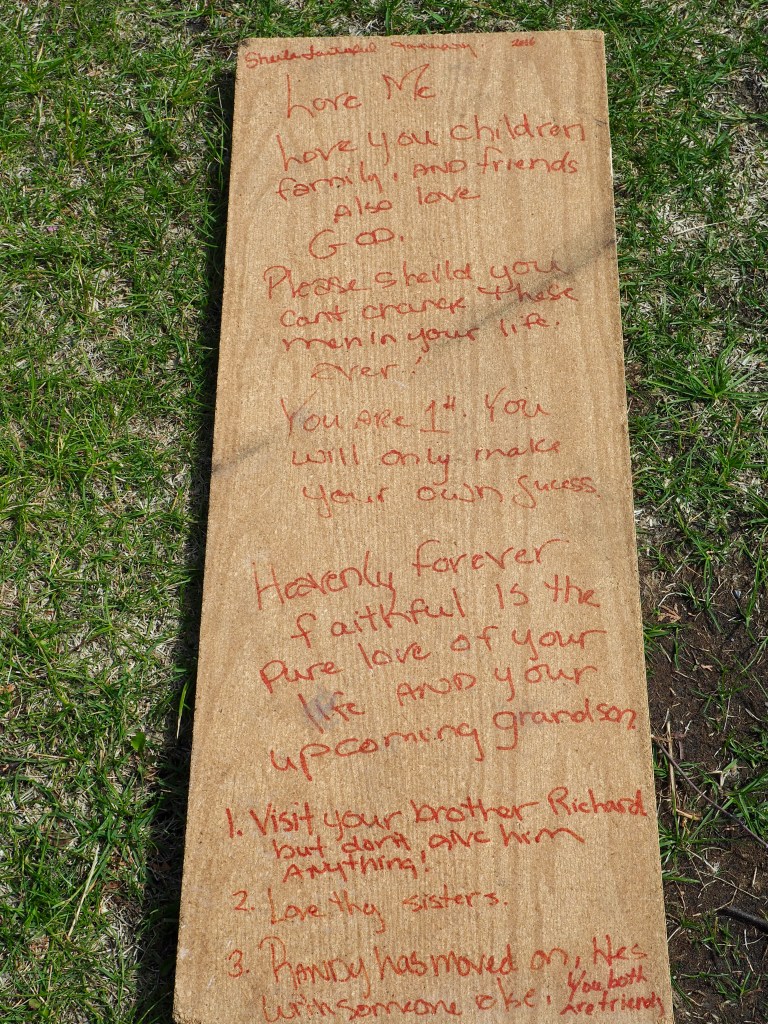 Sheila January 2016
Love Me
Love you children
family, AND friends
Also love
GOD.
Please sheild you
cant change these
men in your life.
ever!
You ARE 1st. You
will only make
your own sucess.
Heavenly forever
faithful Is the
pure love of your
life AND your
upcoming grandson
1. Visit your brother Richard
but don't give him
Anything!
2. Love thy sisters.
3. RANDY has moved on, Hes
with someone else. You both
Are friends